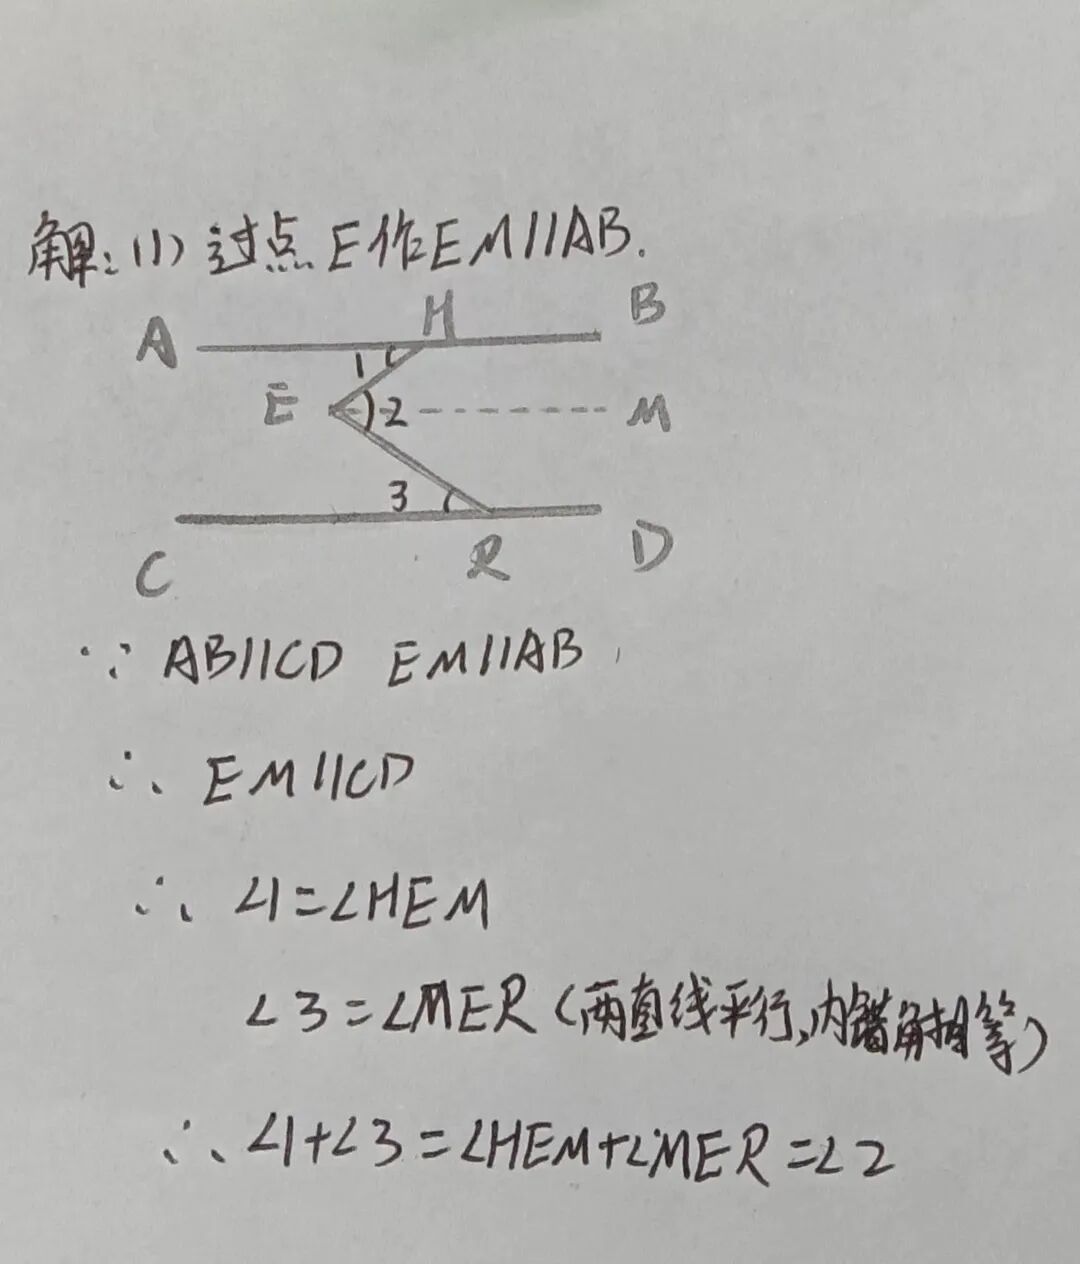 解:(1)过点E作EM//AB.
H B
A
1
E 2 M
3
C R D
∵ AB//CD EM//AB
∴ EM//CD
∴ ∠1=∠HEM
∠3=∠MER(两直线平行,内错角相等)
∴ ∠1+∠3=∠HEM+∠MER=∠2